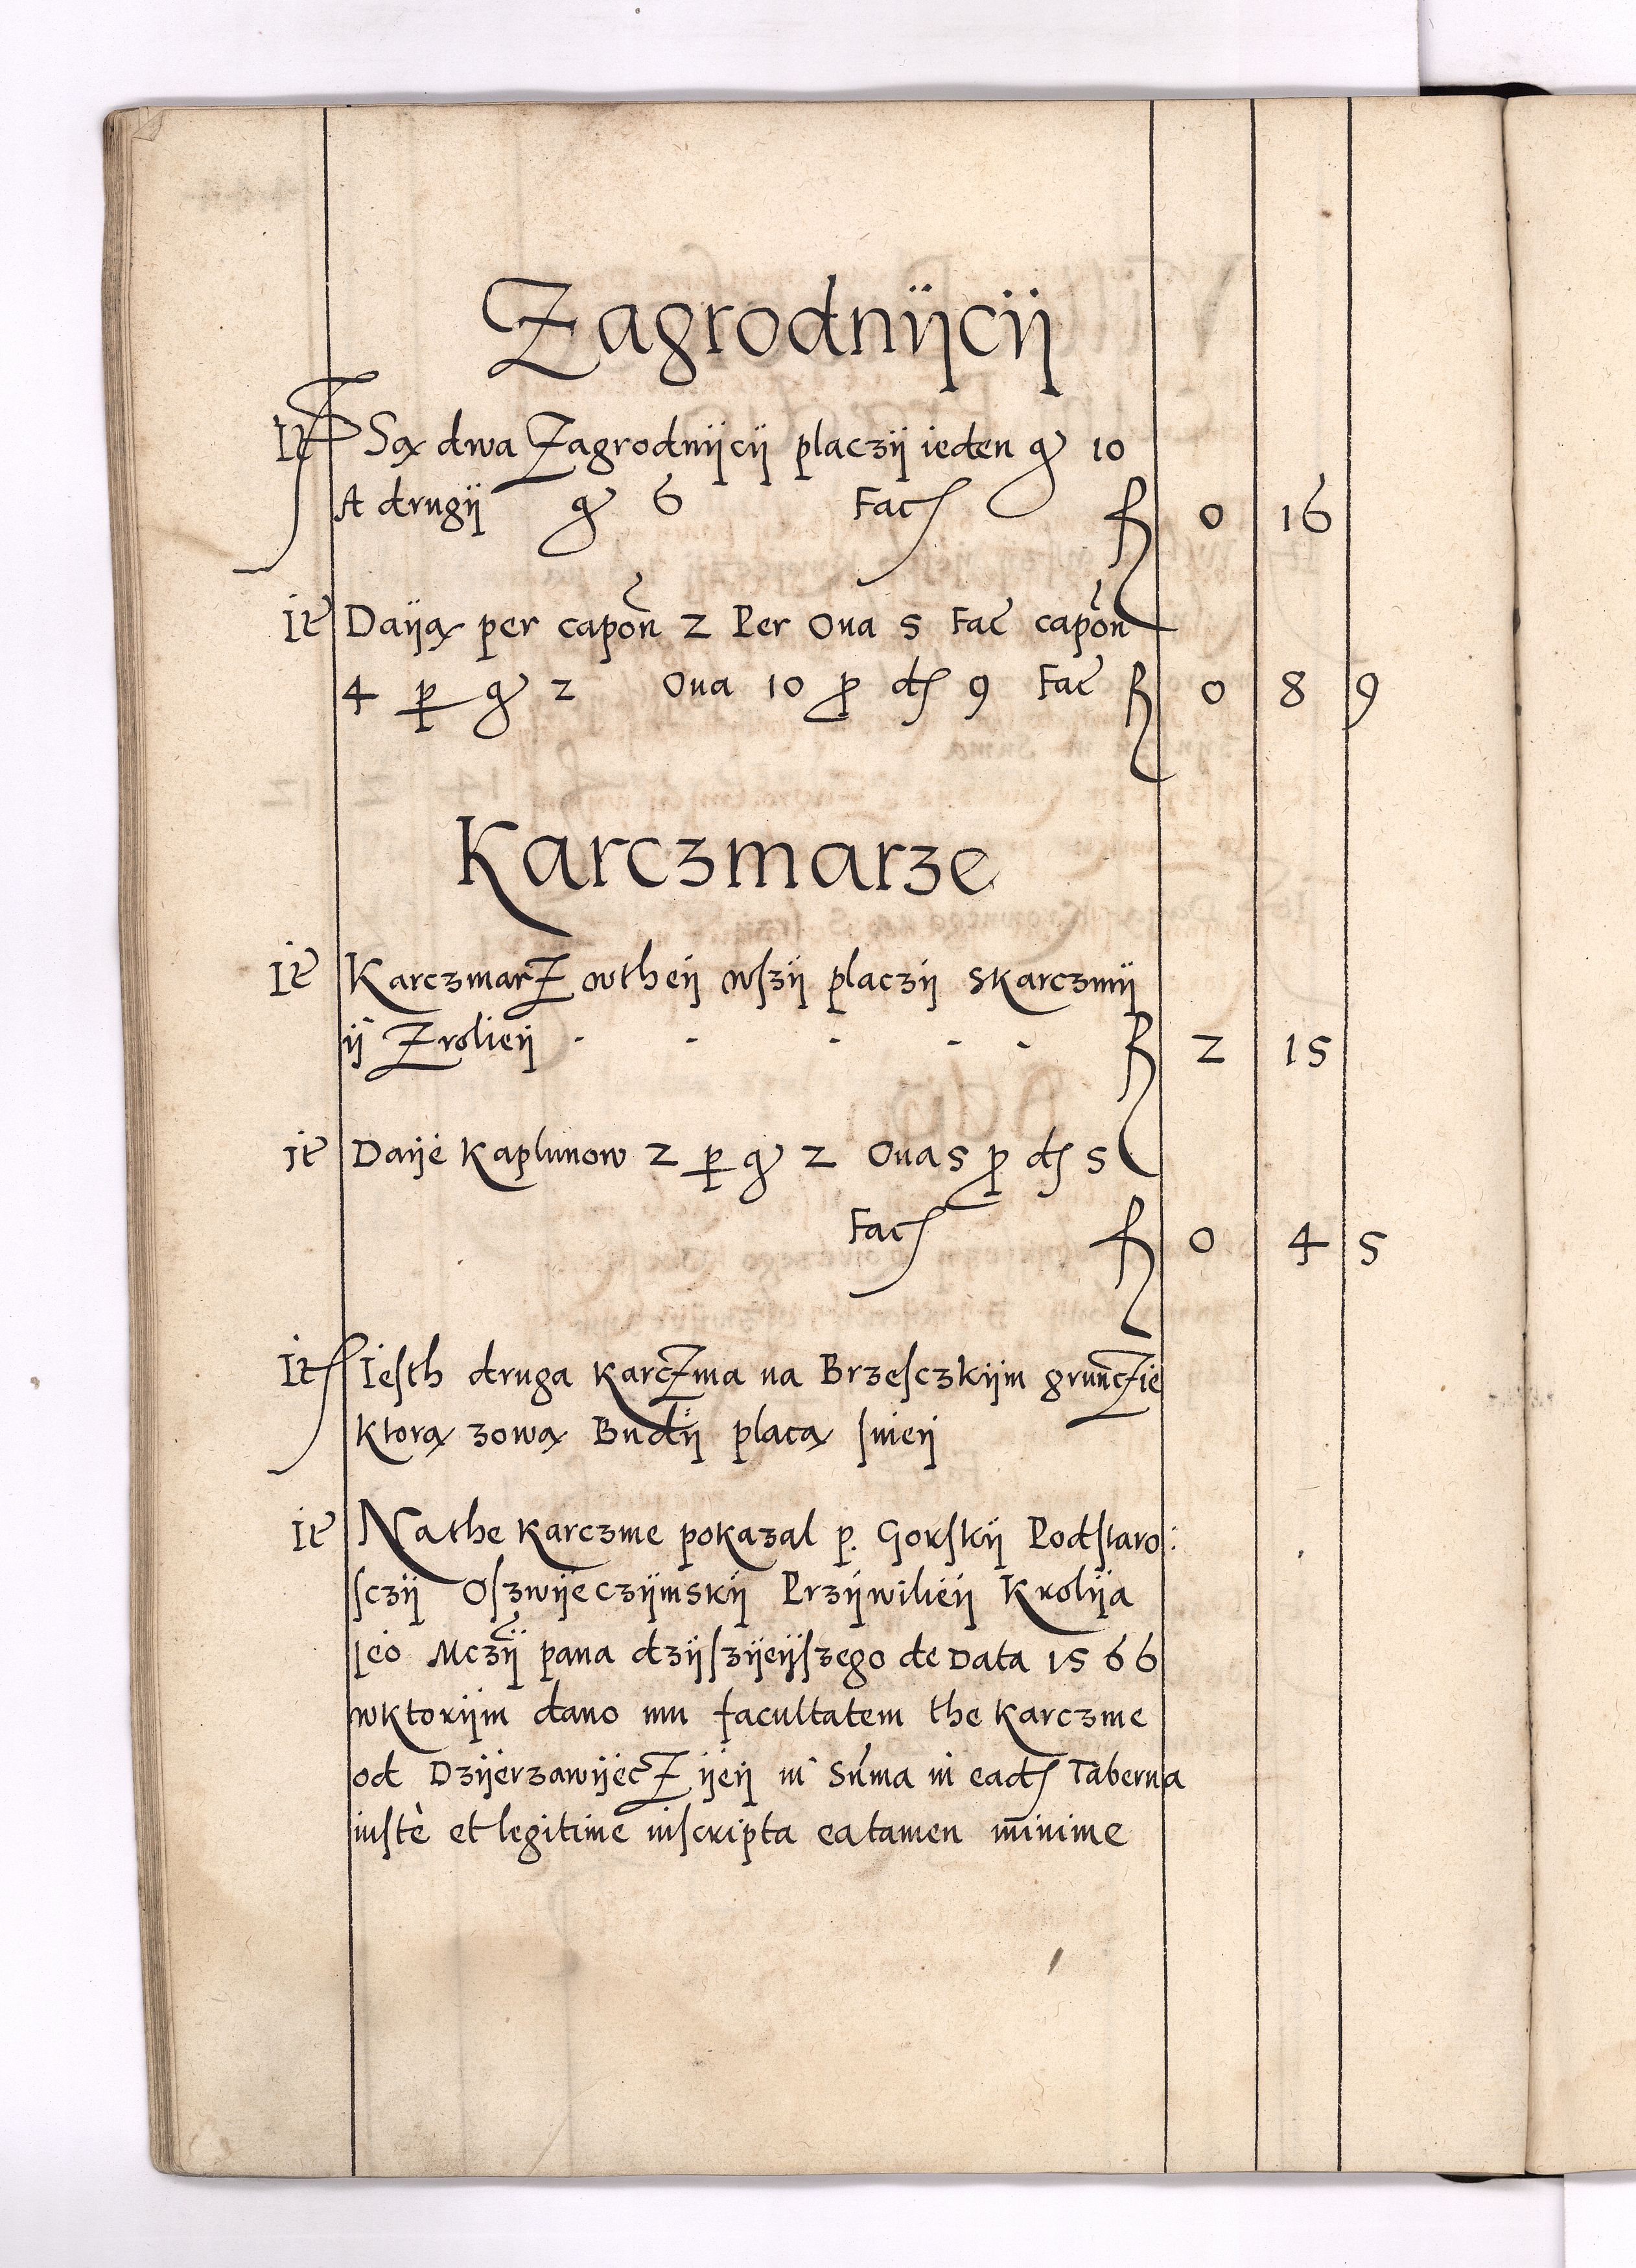 Zagrodnijcij
It Są dwa Zagrodnijcij placzij ieden gr 10
A drugij gr 6 Fac fl 0 16
It Daiją per capon 2 Per Oua 5 Fac capon
4 per gr 2 Oua 10 pro d 9 Fac fl 0 8 9
Karczmarze
It KarczmarZ wtheij wſzij placzij skarczmij
ij Zrolieij - - - - - fl 2 15
It Daije Kaplunow 2 per gr 2 Oua 5 pro d 5
Fac fl 0 4 5
It Ieſth druga karcZma na Brzeſczkijm gruncZie
ktorą zową Budij placą ſnieij
It Na the karczme pokazal p. Gorſkij Podſtaro:
ſczij Oſzwijeczijmskij Przijwilieij Krolija
Ieo Mczij pana dzijſzijeijſzego de Data 1566
wktorijm dano mu facultatem the karczme
od DzijerzawijecZijeij in Suma in ead Taberna
iuſtè et legitime inſcripta ea tamen minime